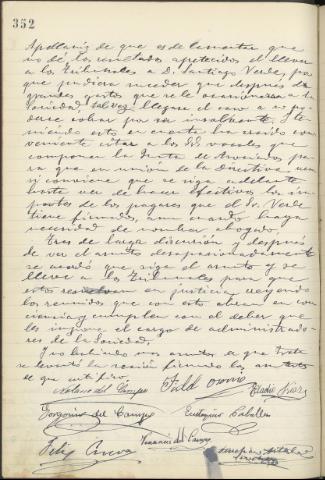 352
de que es de lamentar que
no dé los resultados apetecidos el llevar
a los Tribunales a D. Santiago Verde, por
que pudiera suceder que después de
grandes gastos que se le ocasionasen a la
Sociedad, tal vez llegase el caso a no po
derse cobrar por ser insolvente. Te
niendo esto en cuenta ha creido con
veniente citar a los Sres vocales que
componen la Junta de Asociados pa
ra que en union de la Directiva vean
si conviene que se siga adelante
hasta ver de hacer efectivos los im
portes de los pagarés que el Sr. Verde
tiene firmados, aun cuando haya
necesidad de nombrar abogado.
Tras de larga discusion y después
de ver el asunto desapasionadamente
se acordó que siga el asunto y se
lleve a los Tribunales para que
estos en justicia, creyendo
los reunidos que con esto obran en con
ciencia y cumplen con el deber que
les impone el cargo de administrado
res de la Sociedad.
Y no habiendo mas asuntos de que tratar
se levantó la sesión firmando los asistentes
de que certifico.
del Campo Eladio
del Campo Eutiquio Caballero
Felix Cueva Venancio del Campo